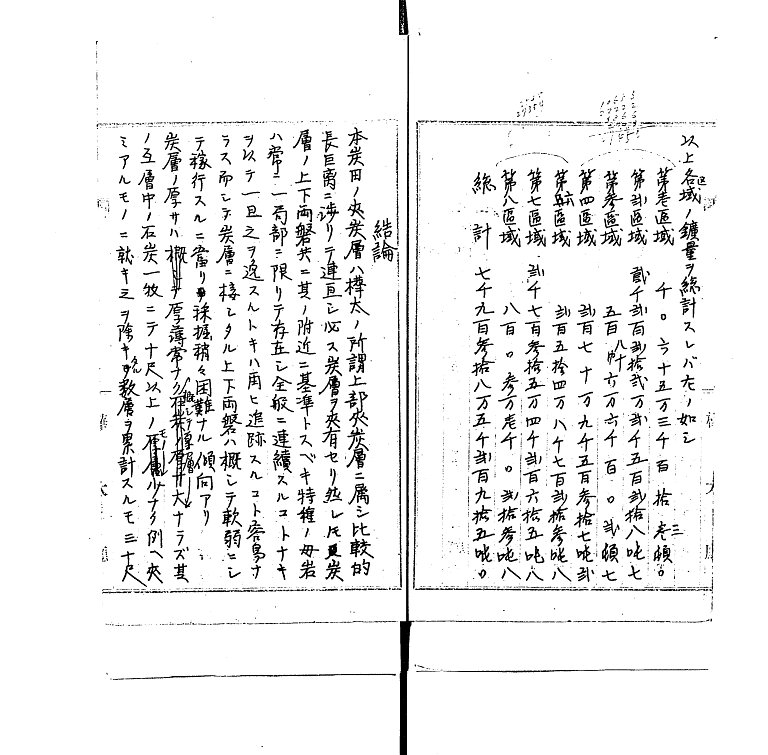 以上各區域ノ鑛量ヲ総計スレバ左ノ如シ
第壱區域 千〇六十五万三千百拾参頓〇
第弐區域 弐千弐百弐拾弐万弐千五百弐拾八吨七
第参區域 五百八拾六万六千百〇弐頓七
第四區域 弐百七十万九千五百参拾七吨弐
第五區域 弐百五拾四万八千七百弐拾参吨八
第七區域 弐千七百参拾五万四千弐百六拾五吨八
第八區域 八百〇参万壱千〇弐拾参吨八
総計 七千九百参拾八万五千弐百九拾五吨〇
結論
本炭田ノ夾炭層ハ樺太ノ所謂上部夾炭層ニ属シ比較的
長巨離ニ渉リテ連亘シ必ス炭層ヲ夾有セリ然レ𪜈且炭
層ノ上下両磐共ニ其ノ附近ニ基準トスベキ特種ノ母岩
ハ常ニ一局部ニ限リテ存在シ全般ニ連續スルコトナキ
ヲ以テ一旦之ヲ逸スルトキハ再ヒ追跡スルコト容易ナ
ラス而シテ炭層ニ接シタル上下両磐ハ概シテ軟弱ニシ
テ稼行スルニ當リ採掘稍々困難ナル傾向アリ
炭層ノ厚サハ概シテ厚層
大ナラズ其
ノ互層中ノ石炭一枚ニテ十尺以上ノモノ
少ナク例ヘ夾
ミアルモノニ就キ之ヲ除キタル数層ヲ累計スルモ三十尺